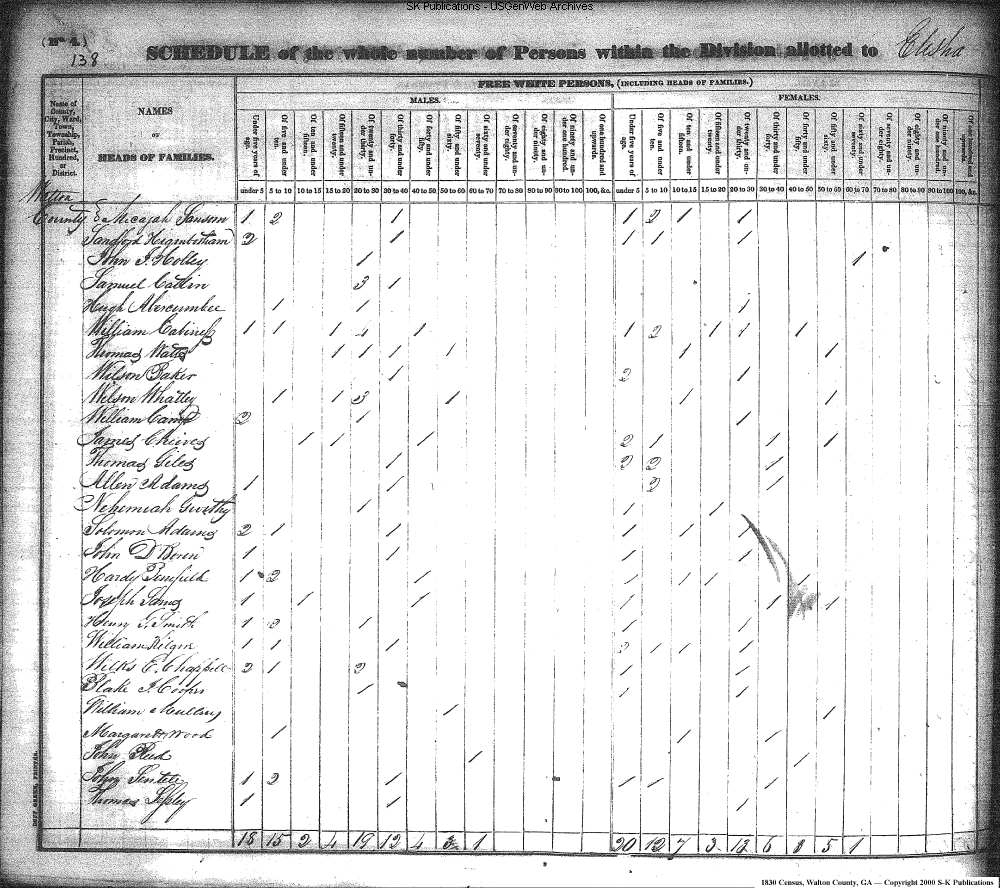 SK Publications - USGenWeb Archives
(No 4.)
138
SCHEDULE of the whole number of Persons within the Division allotted to Elisha
Name of County, City, Ward, Town, Township, Parish, Precinct, Hundred, or District.
NAMES
OF
HEADS OF FAMILIES.
FREE WHITE PERSONS, (INCLUDING HEADS OF FAMILIES.)
MALES.
FEMALES.
Under five years of age.
Of five and under ten.
Of ten and under fifteen.
Of fifteen and under twenty.
Of twenty and under thirty.
Of thirty and under forty.
Of forty and under fifty.
Of fifty and under sixty.
Of sixty and under seventy.
Of seventy and under eighty.
Of eighty and under ninety.
Of ninety and under one hundred.
Of one hundred and upwards.
Under five years of age.
Of five and under ten.
Of ten and under fifteen.
Of fifteen and under twenty.
Of twenty and under thirty.
Of thirty and under forty.
Of forty and under fifty.
Of fifty and under sixty.
Of sixty and under seventy.
Of seventy and under eighty.
Of eighty and under ninety.
Of ninety and under one hundred.
Of one hundred and upwards.
under 5 5 to 10 10 to 15 15 to 20 20 to 30 30 to 40 40 to 50 50 to 60 60 to 70 70 to 80 80 to 90 90 to 100 100, &c. under 5 5 to 10 10 to 15 15 to 20 20 to 30 30 to 40 40 to 50 50 to 60 60 to 70 70 to 80 80 to 90 90 to 100 100, &c.
Walton
County Micajah Sansom 1 2 1 1 2 1 1
Sandford Higenbotham 2 1 1 1 1
John J Holley 1 1
Samuel Catlin 3 1
Hugh Abercumbee 1 1 1
William Cabiness 1 1 1 4 1 1 2 1 1 1
Thomas Watts 1 1 1 1 1 1
Wilson Baker 1 2 1
Wilson Whatley 1 1 3 1 1 1
William Camp 2 1 1
James Chieves 1 1 1 2 1 1 1
Thomas Giles 1 2 2 1
Allen Adams 1 1 2 1
Nehemiah 1 1 1
Solomon Adams 2 1 1 1 1 1
John D 1 1 1 1
Hardy 1 2 1 1 1 1 1
Joseph Sams 1 1 1 1 1 1
Henry G. Smith 1 2 1 1 1
William Kilgin 1 1 1 2 1 1 1
Wilks E. Chappell 2 1 2 1 1
Blake J. Cooper 1 1 1
William Mullins 1 1
Margaret Wood 1 1 1
John Reed 1 1
John 1 2 1 1 1 1
Thomas 1 1 1
18 15 2 4 19 12 4 3 1 20 12 7 3 13 6 5 1
1830 Census, Walton County, GA — Copyright 2000 S-K Publications